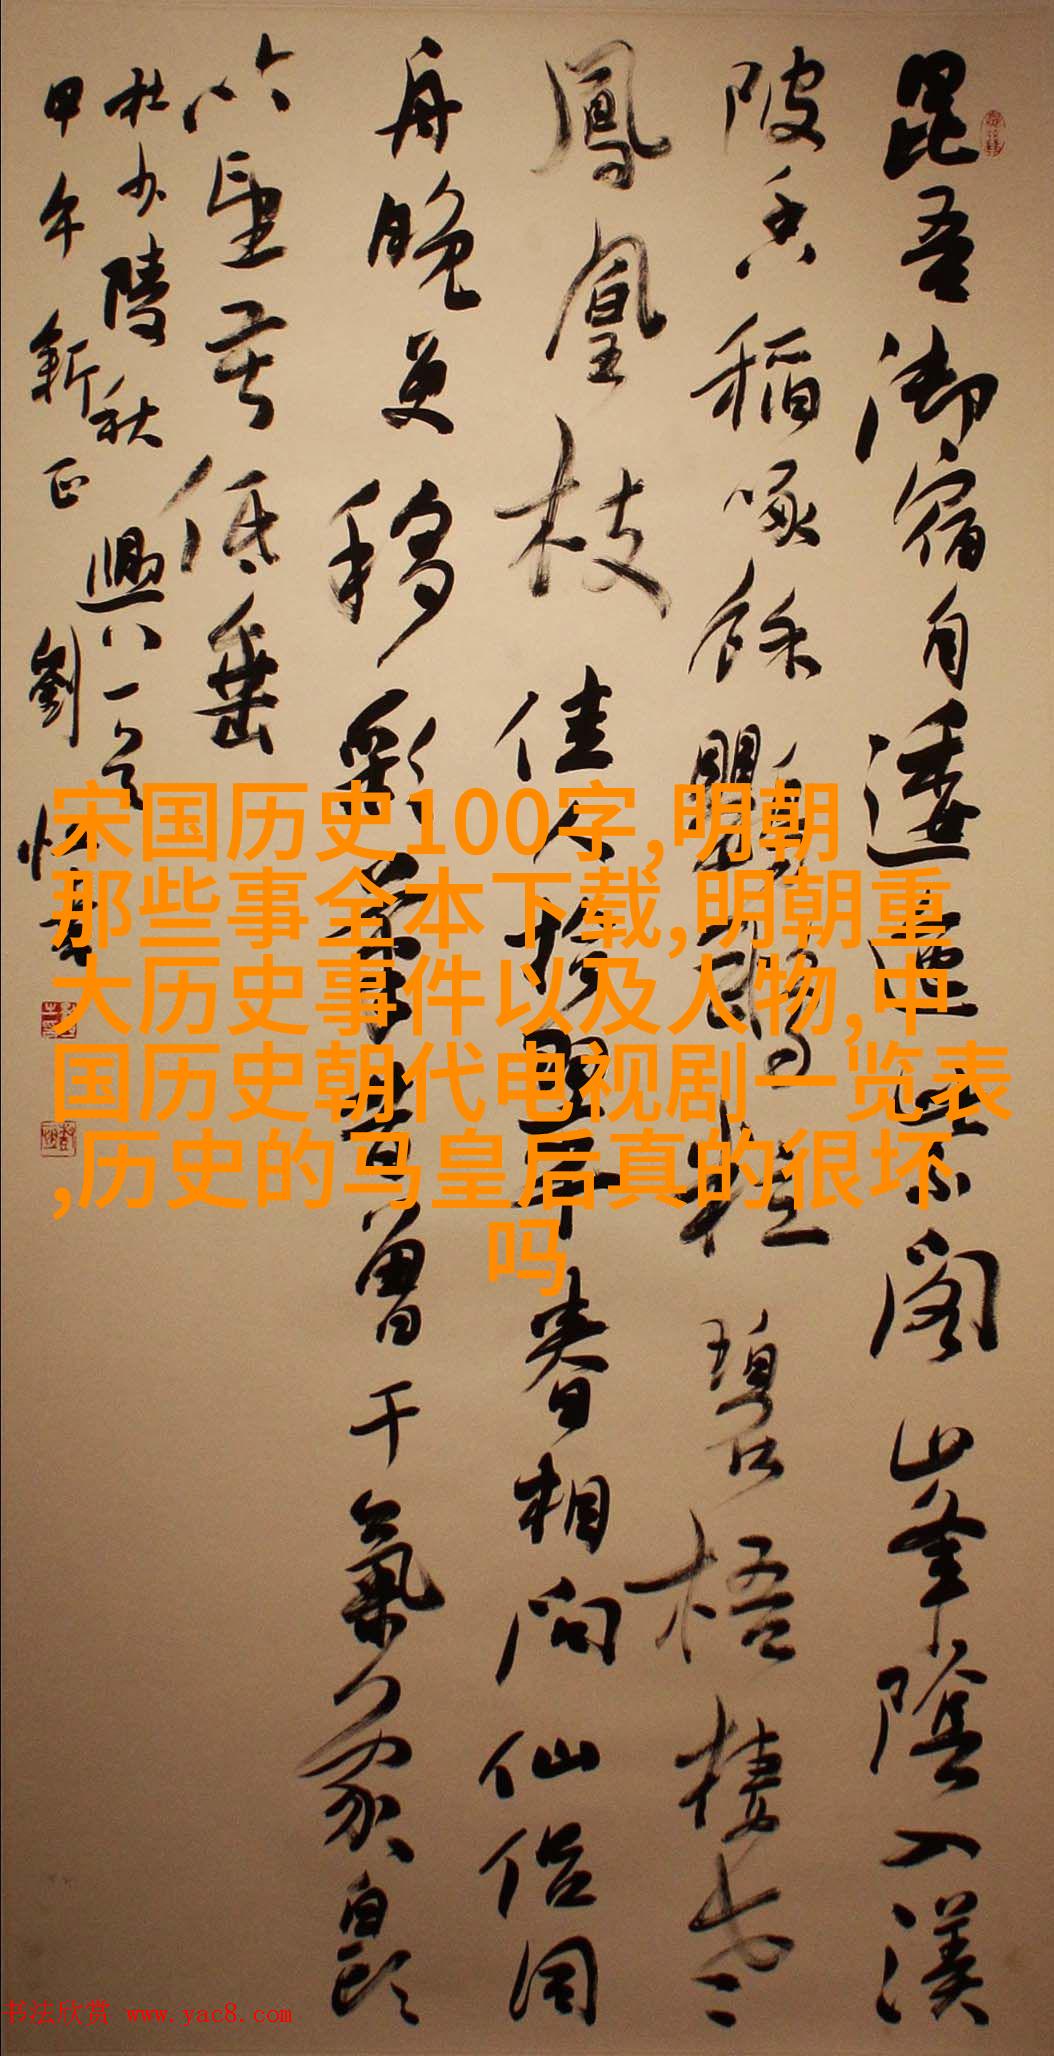 昆吾御宿自逶迤紫阁峯陰入渼
陂香稻啄餘鸚鵡粒碧梧棲老
鳳凰枝佳人拾翠春相問仙侣同
舟晚更移彩筆昔曾干氣象白頭
吟望苦低垂
杜少陵秋興八一首
甲午新正劉
宋国历史100字,明朝
那些事全本下载,明朝重
大历史事件以及人物,中
国历史朝代电视剧一览表
,历史的马皇后真的很坏
吗
书法欣赏 www.yac8.com